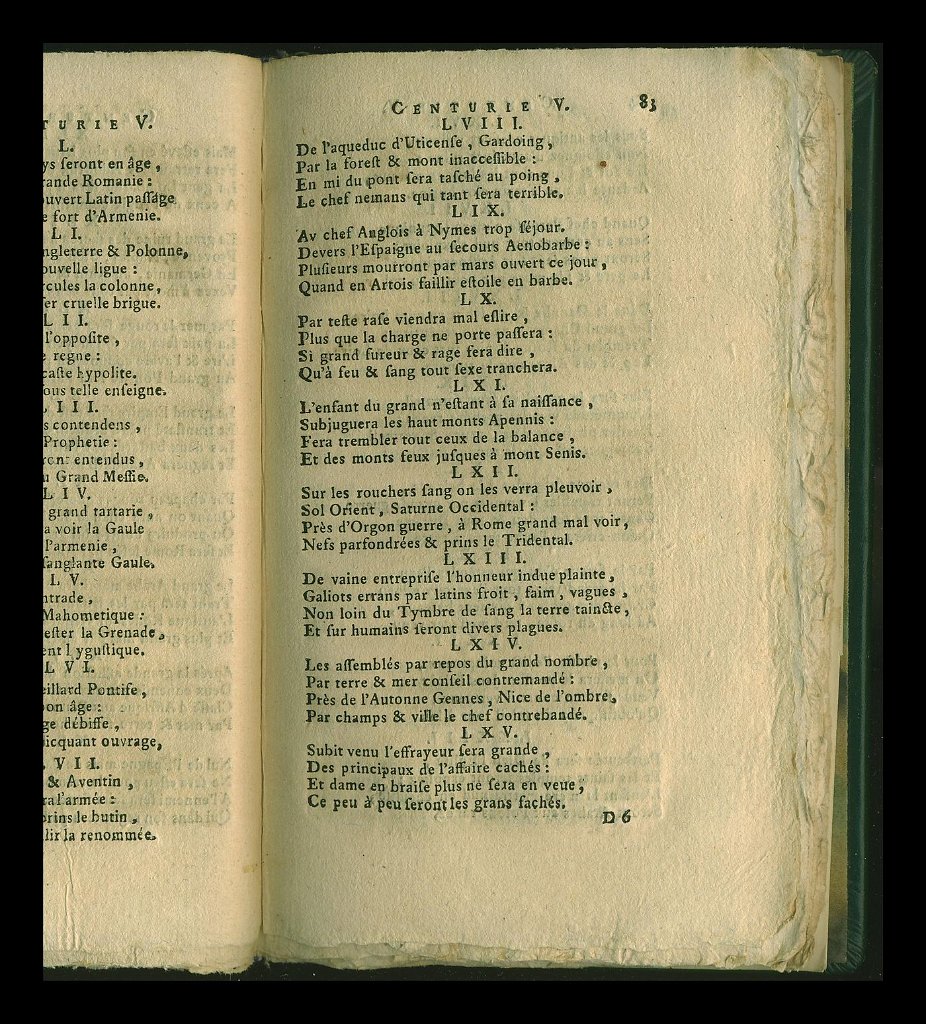 TURIE V.
L.
ys ſeront en âge ,
rande Romanie :
ouvert Latin paſſage
e fort d'Armenie.
L I.
ngleterre & Polonne,
ouvelle ligue :
rcules la colonne,
ſer cruelle brigue.
L I I.
l'oppoſite ,
e regne :
caſte hypolite.
ſous telle enſeigne.
I I I.
s contendens ,
Prophetie :
ront entendus ,
u Grand Meſſie.
L I V.
grand tartarie ,
a voir la Gaule
l'armenie ,
ſanglante Gaule.
L V.
ntrade ,
Mahometique :
eſter la Grenade ,
ent lyguſtique.
L V I.
eillard Pontife ,
bon âge :
ge débiffe ,
icquant ouvrage,
. V I I.
& Aventin ,
ra l'armée :
prins le butin ,
lir la renommée.
CENTURIE V. 83
L V I I I.
De l'aqueduc d'Uticenſe , Gardoing ,
Par la foreſt & mont inacceſſible :
En mi du pont ſera taſché au poing ,
Le chef nemans qui tant ſera terrible.
L I X.
Av chef Anglois à Nymes trop ſéjour.
Devers l'Eſpaigne au ſecours Aenobarbe :
Pluſieurs mourront par mars ouvert ce jour ,
Quand en Artois faillir eſtoile en barbe.
L X.
Par teſte raſe viendra mal eſlire ,
Plus que la charge ne porte paſſera :
Si grand fureur & rage fera dire ,
Qu'à feu & ſang tout ſexe tranchera.
L X I.
L'enfant du grand n'eſtant à ſa naiſſance ,
Subjuguera les haut monts Apennis :
Fera trembler tout ceux de la balance ,
Et des monts feux juſques à mont Senis.
L X I I.
Sur les rouchers ſang on les verra pleuvoir ,
Sol Orient , Saturne Occidental :
Près d'Orgon guerre , à Rome grand mal voir ,
Nefs parfondrées & prins le Tridental.
L X I I I.
De vaine entrepriſe l'honneur indue plainte ,
Galiots errans par latins froit , faim , vagues ,
Non loin du Tymbre de ſang la terre tainſte ,
Et ſur humains ſeront divers plagues.
L X I V.
Les aſſemblés par repos du grand nombre ,
Par terre & mer conſeil contremandé :
Près de l'Autonne Gennes , Nice de l'ombre ,
Par champs & ville le chef contrebandé.
L X V.
Subit venu l'effrayeur ſera grande ,
Des principaux de l'affaire cachés :
Et dame en braiſe plus ne ſera en veue ,
Ce peu à peu ſeront les grans fachés.
D 6